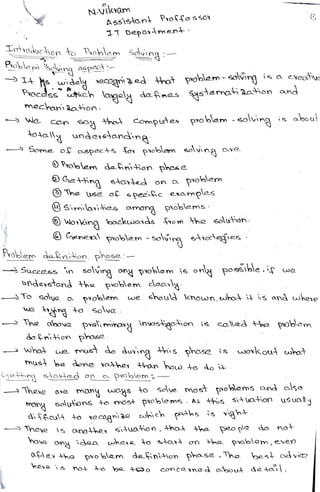 N.Vikram
Assistant Proffessor
IT Department.
Introduction to Problem Solving :-
Problem Solving aspect:-
→ It is widely recognized that problem-solving is a creative
Process which largely defines systematization and
mechanization.
→ We can say that computer problem-solving is about
totally understanding.
→ Some of aspects for problem solving are
① Problem definition phase
② Getting started on a problem
③ The use of specific examples
④ Similarities among problems.
⑤ Working backwards from the solution.
⑥ General problem-solving strategies.
Problem definition phase:-
→ Success in solving any problem is only possible. if we
understand the problem clearly
→ To solve a problem we should known. what it is and where
we trying to solve.
→ The above preliminary investigation is called the problem
definition phase.
→ What we must do during this phase is workout what
must be done rather than how to do it.
Getting started on a problem:-
→ There are many ways to solve most problems and also
many solutions to most problems. As this situation usually
difficult to recognize which paths is right.
→ There is another situation, that the people do not
have any idea where to start on the problem, even
after the problem definition phase. The best advice
here is not to be too concerned about detail.